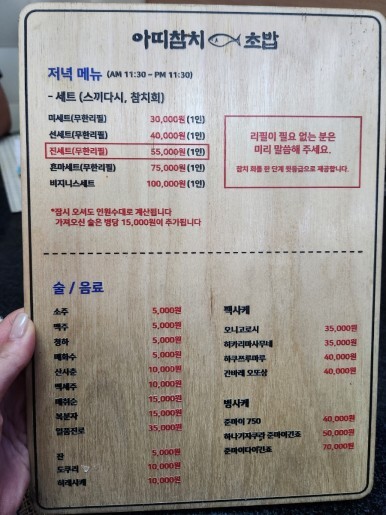 아띠참치 초밥
저녁 메뉴 (AM 11:30 – PM 11:30)
- 세트 (스끼다시, 참치회)
미세트(무한리필) 30,000원(1인)
선세트(무한리필) 40,000원(1인)
진세트(무한리필) 55,000원(1인)
혼마세트(무한리필) 75,000원(1인)
비지니스세트 100,000원(1인)
리필이 필요 없는 분은
미리 말씀해 주세요.
참치 회를 한 단계 윗등급으로 제공합니다.
*잠시 오셔도 인원수대로 계산됩니다
가져오신 술은 병당 15,000원이 추가됩니다
술 / 음료
소주 5,000원
맥주 5,000원
청하 5,000원
매화수 5,000원
산사춘 10,000원
백세주 10,000원
매취순 15,000원
복분자 15,000원
일품진로 35,000원
잔 5,000원
도쿠리 10,000원
히레사케 10,000원
팩사케
오니고로시 35,000원
히카리마사무네 35,000원
하쿠쯔루마루 40,000원
간바레 오또상 40,000원
병사케
준마이 750 40,000원
하나기자쿠라 준마이긴죠 50,000원
준마이다이긴죠 70,000원